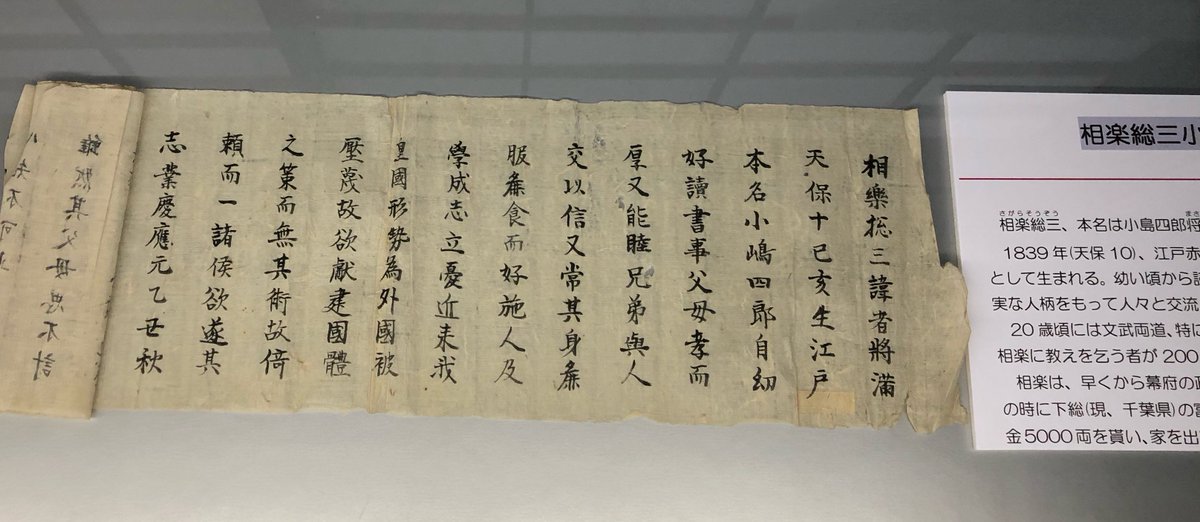 相樂捴三諱者將滿
天保十己亥生江戸
本名小嶋四郎自幼
好讀書事父母孝而
厚又能睦兄弟與人
交以信又常其身麁
服麁食而好施人及
學成志立憂近来我
皇國形勢為外國被
壓蔑故欲獻建國體
之策而無其術故倚
頼而一諸侯欲遂其
志業慶應元乙丑秋
雖然其父母 不計
相楽総三小
さがらそうぞう
相楽総三、本名は小島四郎将
1839年(天保10)、江戸赤
として生まれる。幼い頃から
実な人柄をもって人々と交流
20歳頃には文武両道、特に
相楽に教えを乞う者が200
相楽は、早くから幕府の
の時に下総(現、千葉県)の
金5000両を貰い、家を出